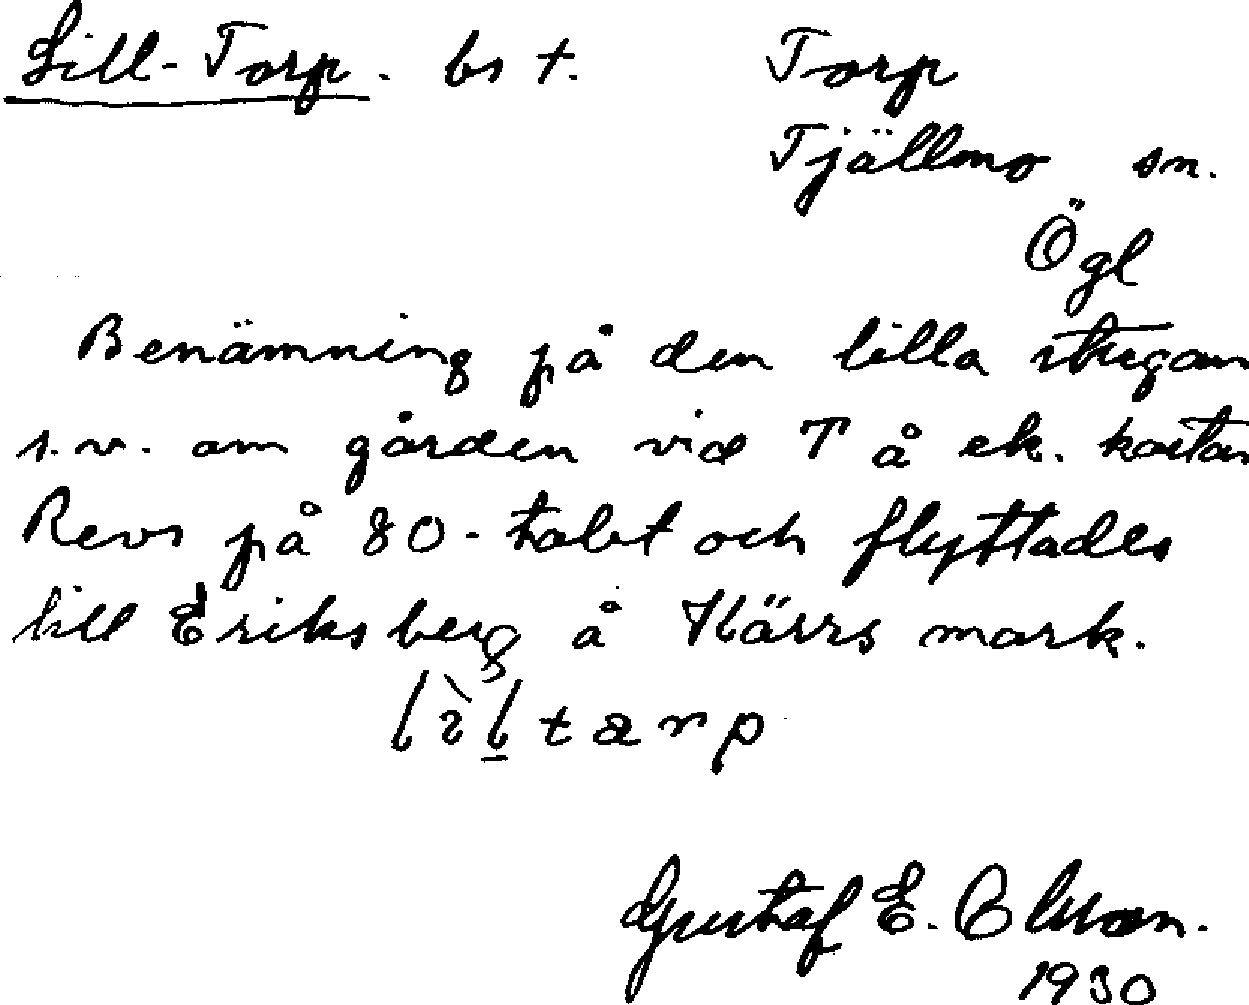 Lill-Torp. bs t. Torp
Tjällmo sn.
Ögl
Benämning på den lilla stugan
s.v. om gården vid T å ek. kartan
Revs på 80-talet och flyttades
till Eriksberg å Kärrs mark.
Gustaf E. Olsson.
1930